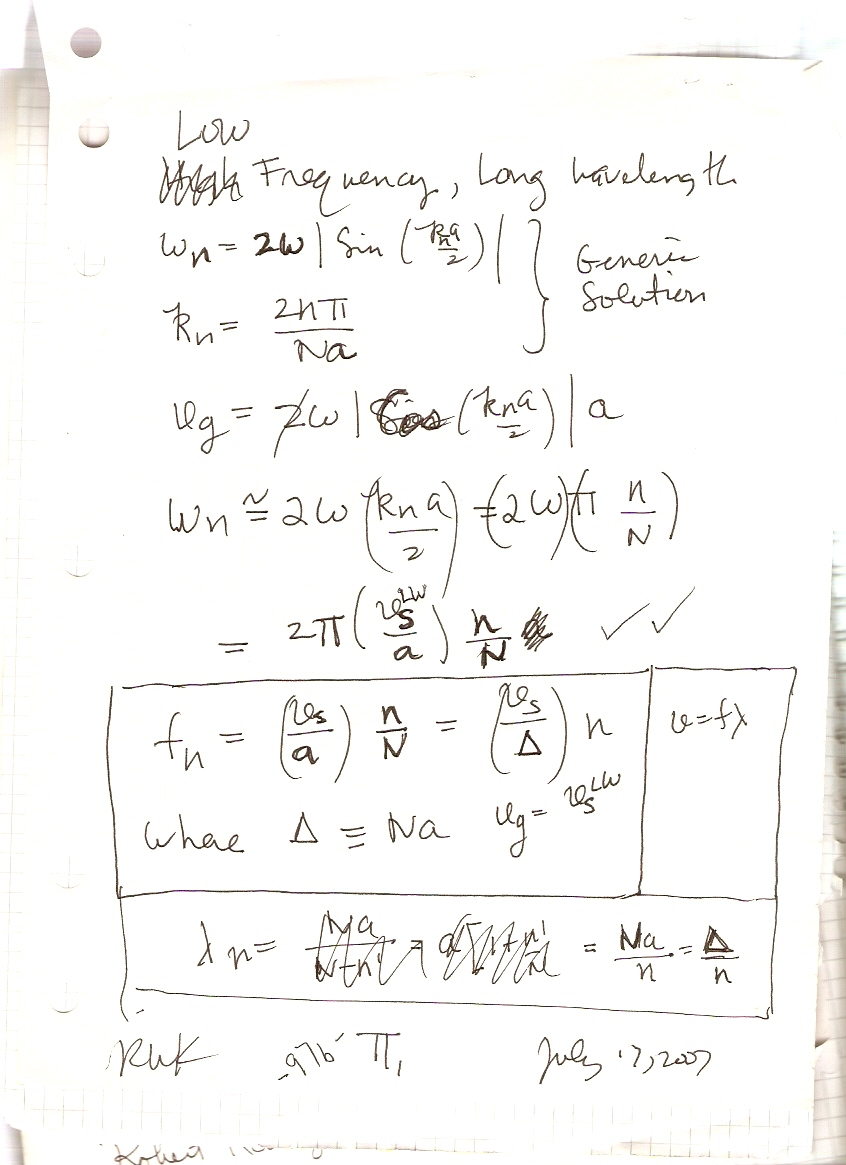 Low
Frequency, Long wavelength
ωn = 2ω | Sin (kna/2) | } Generic Solution
kn = 2nπ/Na
vg = 2ω | Cos (kna/2) | a
ωn ≅ 2ω (kn a/2) = (2ω)(π n/N)
= 2π (vs^LW/a) n/N ✓✓
fn = (vs/a) n/N = (vs/Δ) n
v = fλ
where Δ ≡ Na vg = vs^LW
λn = = Na/n = Δ/n
RWK π, July 17, 2007